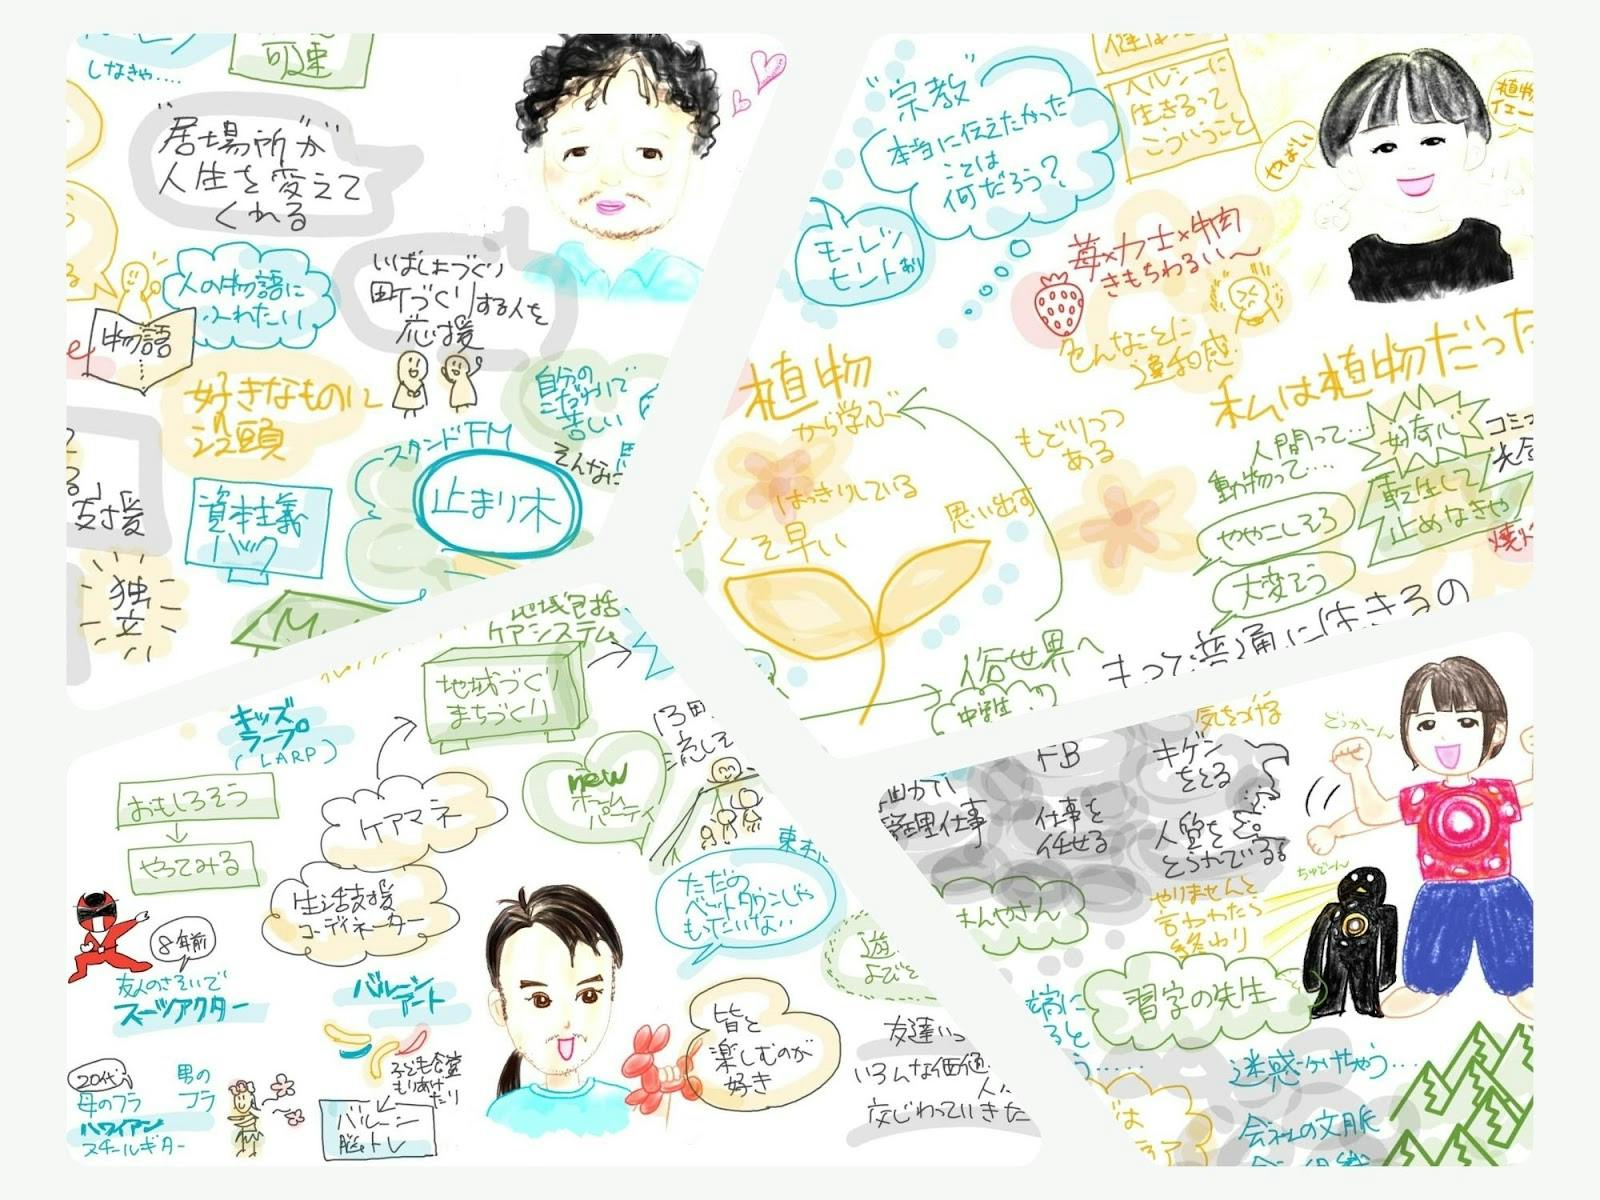 しなきゃ....
可速
"居場所"が
人生を変えて
くれる
人の物語に
ふれたい
物語
いばしょづくり
町づくりする人を
応援
好きなものに
没頭
自分の
こだわりで
苦しい
そんなに
スタンドFM
止まり木
資本主義
支援
独立
"宗教"
本当に伝えたかった
ことは
何だろう?
モーレツ
ヒント
ヘルシーに
生きるって
こういうこと
やばい
植物
苺×力士×牛肉
きもちわるい〜
色んなことに
違和感
植物
から学ぶ
はっきりしている
くそ早い
思い出す
もどりつつ
ある
私は植物だった
人間って...
動物って....
ややこしそう
大変そう
好奇心
転生して
止めなきゃ
俗世界へ
もっと普通に生きるの
地域包括
ケアシステム
地域づくり
まちづくり
キッズ
ラープ
(LARP)
おもしろそう
やってみる
ケアマネ
生活支援
コーディネーター
new
ホーム
パーティ
流して
ただの
ベットタウンじゃ
もったいない
8年前
友人のさそいで
スーツアクター
バルーン
アート
子ども食堂
もりあげ
たり
バルーン
脳トレ
20代
母のフラ
ハワイアン
スチールギター
男の
フラ
皆と
楽しむのが
好き
友達いっ
いろんな価値
人
交じわっていきた
気をつける
FB
キゲン
をとる
管理仕事
仕事を
任せる
人質を
とられている。
どっかーん
ちゅどーん
やりませんと
言われたら
終わり
習字の先生
迷惑かけちゃう...
会社の文脈